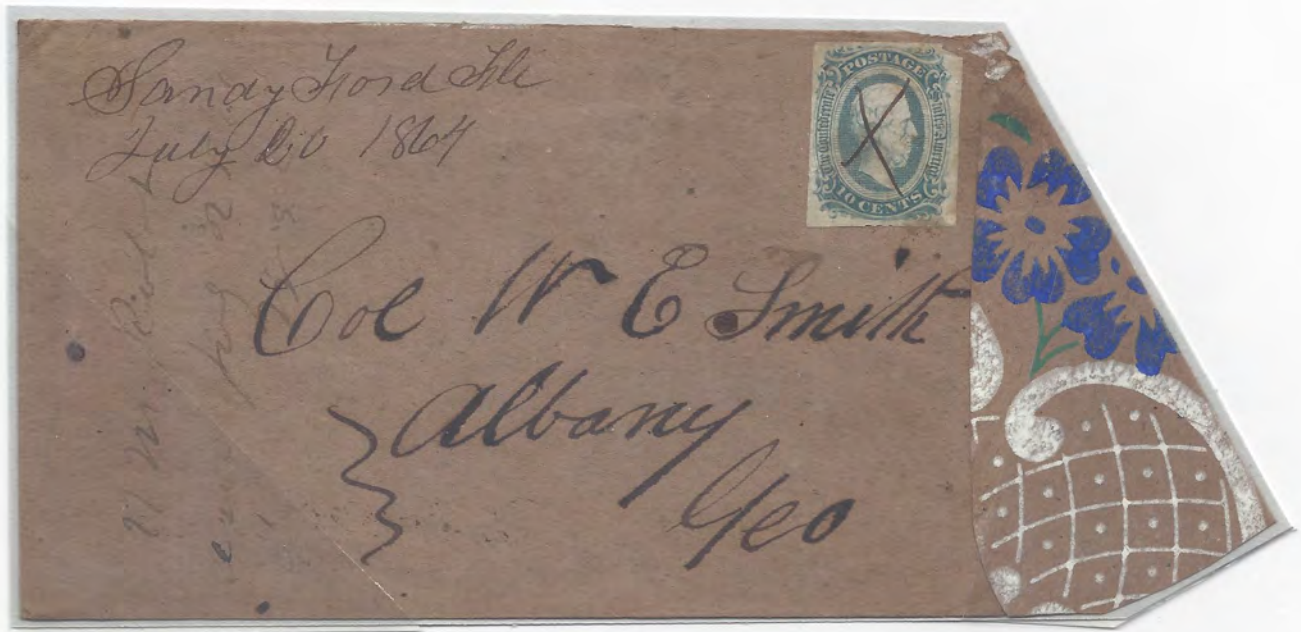 Sandy Ford Fla
July 20 1864
POSTAGE
The Confederate States of America
10 CENTS
X
Col W E Smith
Albany
Geo